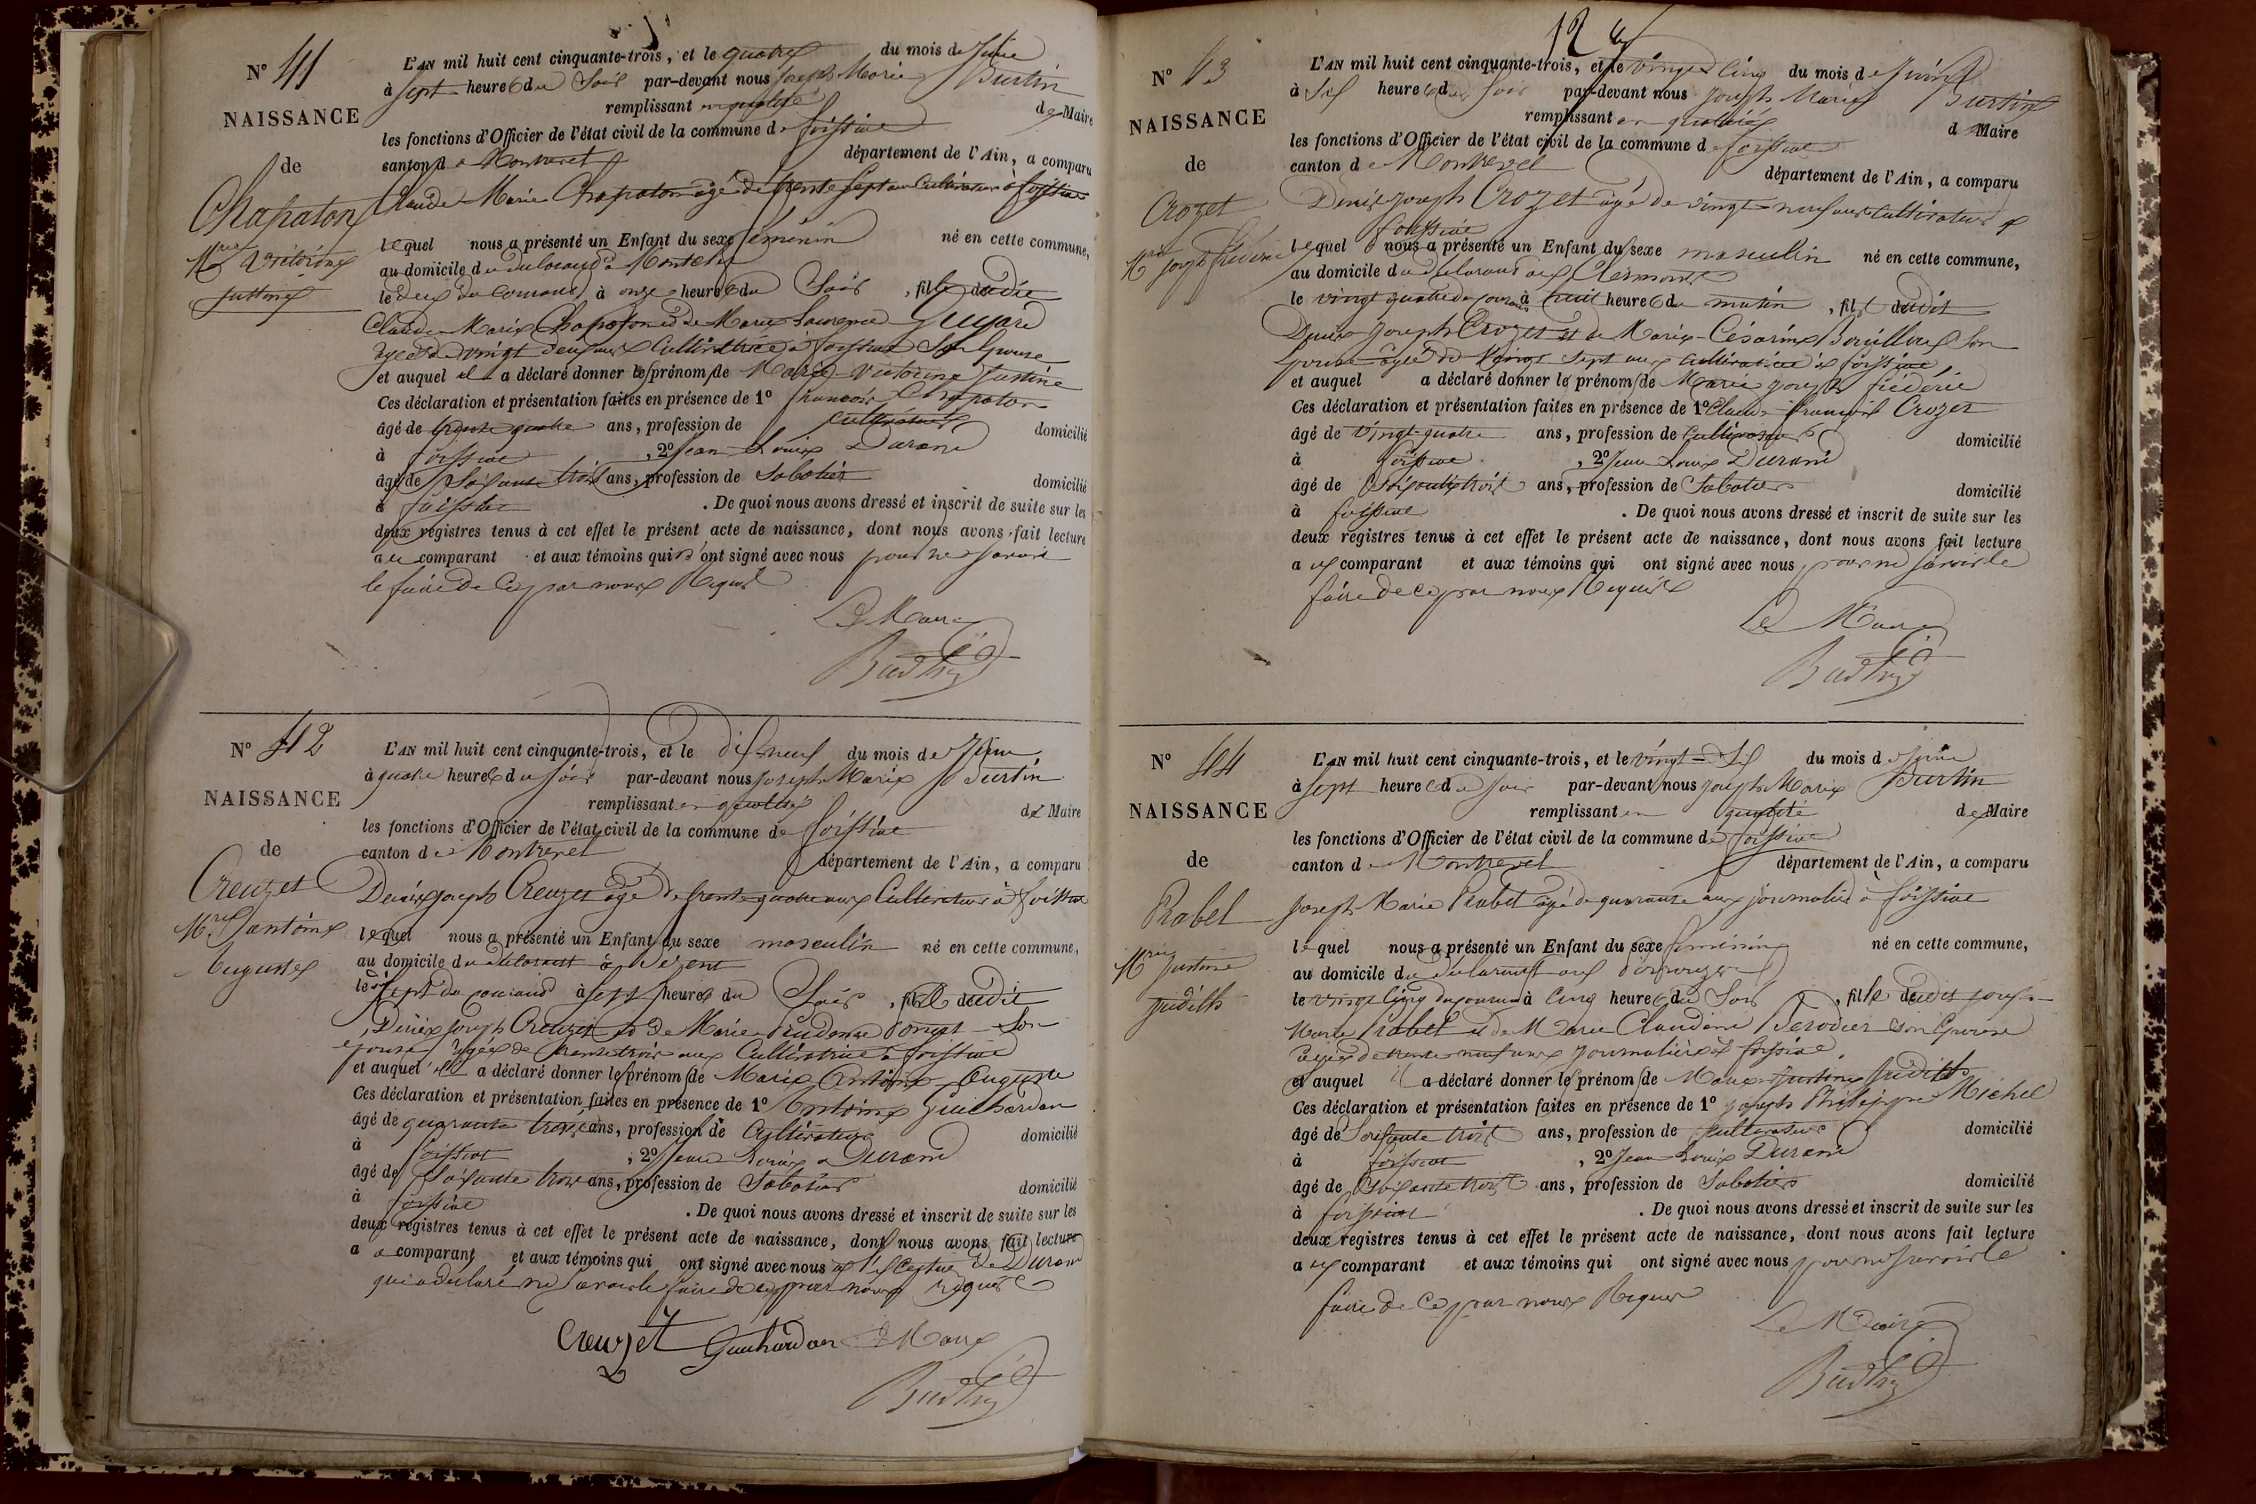 N° 41
NAISSANCE
de
Chapaton
M.rie Victorine
Justine
L'AN mil huit cent cinquante-trois, et le quatre du mois de Juin
à sept heures du Soir par-devant nous Joseph Marie Burtin
remplissant en qualité de Maire
les fonctions d'Officier de l'état civil de la commune de foissiat
canton de Montrevel département de l'Ain, a comparu
Claude Marie Chapaton agé de trente sept ans Cultivateur à foissiat
lequel nous a présenté un Enfant du sexe féminin né en cette commune,
au domicile du déclarant à
le deux du courant à onze heures du Soir, fille dudit
Claude Marie Chapaton et de Marie Laurence Guyard
agée de vingt deux ans Cultivatrice à foissiat Son Epouse
et auquel il a déclaré donner les prénoms de Marie Victorine Justine
Ces déclaration et présentation faites en présence de 1° françois Chapaton
âgé de trente quatre ans, profession de Cultivateur domicilié
à foissiat, 2° Jean Louis Durand
âgé de Soixante trois ans, profession de Sabotier domicilié
à foissiat. De quoi nous avons dressé et inscrit de suite sur les
deux registres tenus à cet effet le présent acte de naissance, dont nous avons fait lecture
au comparant et aux témoins qui n'ont signé avec nous pour ne savoir
le faire de ce par nous Requis
Le Maire
Burtin
N° 42
NAISSANCE
de
Creuzet
M.rie antoine
Auguste
L'AN mil huit cent cinquante-trois, et le dix-neuf du mois de Juin
à quatre heures du soir par-devant nous Joseph Marie Burtin
remplissant en qualité de Maire
les fonctions d'Officier de l'état civil de la commune de foissiat
canton de Montrevel département de l'Ain, a comparu
Denis joseph Creuzet agé de trente quatre ans Cultivateur à foissiat
lequel nous a présenté un Enfant du sexe masculin né en cette commune,
au domicile du déclarant à
le dix sept du courant à sept heures du Soir, fils dudit
Denis Joseph Creuzet et de Marie Prudence Son
epouse agée de trente trois ans Cultivatrice à foissiat
et auquel il a déclaré donner les prénoms de Marie Antoine Auguste
Ces déclaration et présentation faites en présence de 1° Antoine Guichardan
âgé de quarante trois ans, profession de Cultivateur domicilié
à foissiat, 2° Jean Louis Durand
âgé de Soixante trois ans, profession de Sabotier domicilié
à foissiat. De quoi nous avons dressé et inscrit de suite sur les
deux registres tenus à cet effet le présent acte de naissance, dont nous avons fait lecture
au comparant et aux témoins qui ont signé avec nous à l'exception de Durand
qui a déclaré ne savoir le faire de ce par nous requis
Creuzet Guichardan Le Maire
Burtin
12
N° 43
NAISSANCE
de
Crozet
M.rie joseph fréderic
L'AN mil huit cent cinquante-trois, et le vingt cinq du mois de Juin
à Six heures du soir par-devant nous Joseph Marie Burtin
remplissant en qualité d Maire
les fonctions d'Officier de l'état civil de la commune de foissiat
canton de Montrevel département de l'Ain, a comparu
Denis joseph Crozet agé de vingt-neuf ans Cultivateur à
foissiat
lequel nous a présenté un Enfant du sexe masculin né en cette commune,
au domicile du déclarant aux Clermonts
le vingt quatre du courant à huit heures du matin, fils dudit
Denis Joseph Crozet et de Marie Césarine Bouilloux Son
épouse agée de vingt sept ans cultivatrice à foissiat
et auquel a déclaré donner les prénoms de Marie joseph fréderic
Ces déclaration et présentation faites en présence de 1° Claude françois Crozet
âgé de vingt-quatre ans, profession de Cultivateur domicilié
à foissiat, 2° Jean Louis Durand
âgé de Soixante trois ans, profession de Sabotier domicilié
à foissiat. De quoi nous avons dressé et inscrit de suite sur les
deux registres tenus à cet effet le présent acte de naissance, dont nous avons fait lecture
aux comparant et aux témoins qui ont signé avec nous pour ne savoir le
faire de ce par nous Requis
Le Maire
Burtin
N° 44
NAISSANCE
de
Prabel
M.rie Justine
Judith
L'AN mil huit cent cinquante-trois, et le vingt-Six du mois de Juin
à sept heures du soir par-devant nous Joseph Marie Burtin
remplissant en qualité de Maire
les fonctions d'Officier de l'état civil de la commune de foissiat
canton de Montrevel département de l'Ain, a comparu
Joseph Marie Prabel agé de quarante ans journalier à foissiat
lequel nous a présenté un Enfant du sexe feminin né en cette commune,
au domicile du déclarant aux
le vingt Cinq du courant à Cinq heures du Soir, fille dudit joseph
Marie Prabel et de Marie Claudine Berodier son Epouse
agée de trente neuf ans journalière à foissiat
et auquel il a déclaré donner les prénoms de Marie Justine Judith
Ces déclaration et présentation faites en présence de 1° joseph Philippe Michel
âgé de Soixante trois ans, profession de Cultivateur domicilié
à foissiat, 2° Jean Louis Durand
âgé de Soixante trois ans, profession de Sabotier domicilié
à foissiat. De quoi nous avons dressé et inscrit de suite sur les
deux registres tenus à cet effet le présent acte de naissance, dont nous avons fait lecture
aux comparant et aux témoins qui ont signé avec nous pour ne savoir le
faire de ce par nous Requis
Le Maire
Burtin